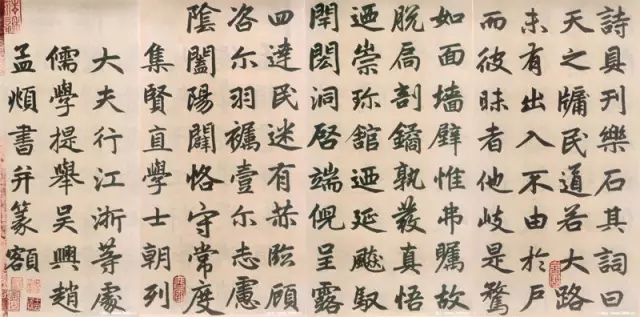 詩具刊樂石其詞曰
天之牖民道若大路
未有出入不由於戶
而彼昧者他岐是騖
如面墻壁惟弗矚故
脫扃剖鐍孰發真悟
迺崇珎館迺延飈馭
閈閎洞啓端倪呈露
四達民迷有赫臨顧
咨尓羽襹壹尓志慮
陰闔陽闢恪守常度
集賢直學士朝列
大夫行江浙等處
儒學提舉吳興趙
孟頫書并篆額